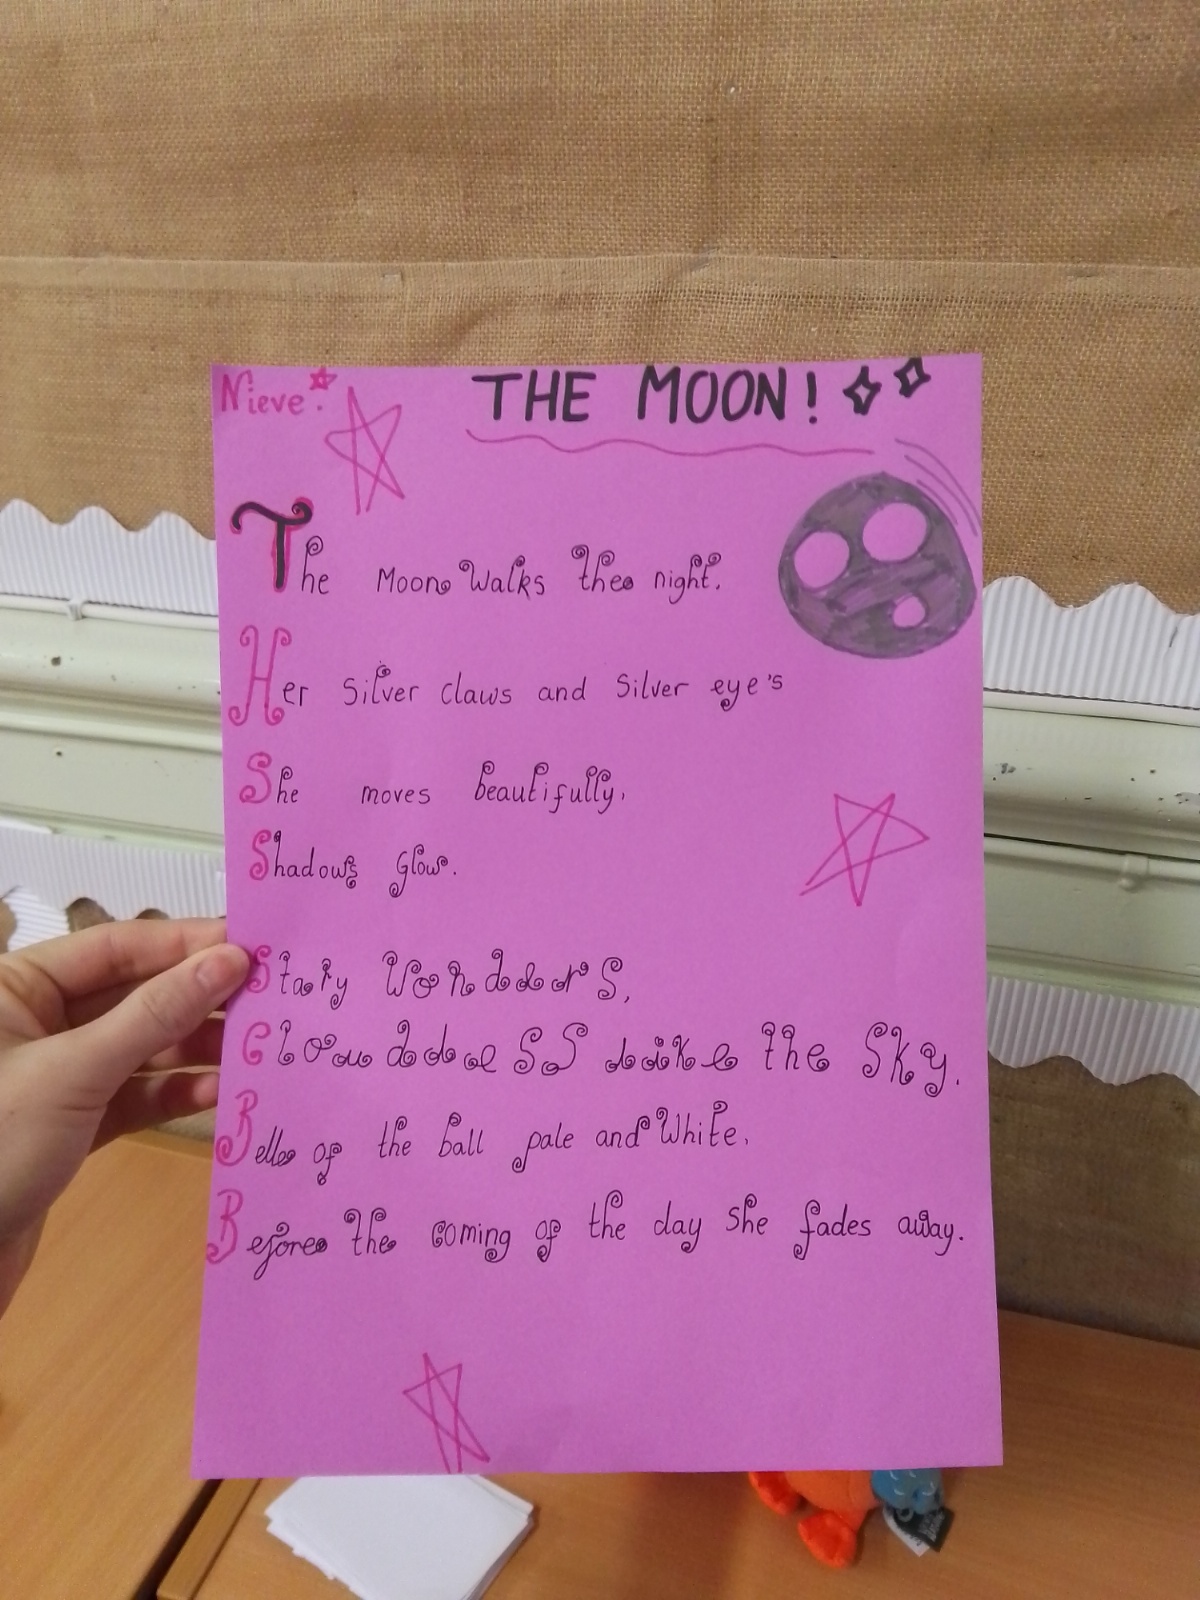 Nieve.
THE MOON!
The Moon Walks the night.
Her Silver claws and Silver eye's
She moves beautifully,
Shadows Glow.
Stary Wonders,
the Sky.
Belle of the ball pale and White,
Before the coming of the day she fades away.